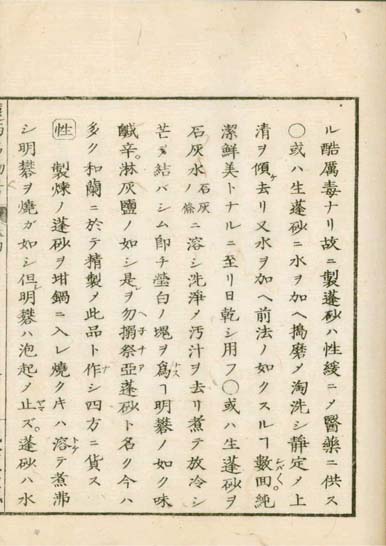 ル酷厲毒ナリ故ニ製蓬砂ハ性緩ニメ醫藥ニ供ス
〇或ハ生蓬砂ニ水ヲ加ヘ搗磨メ淘洗シ静定ノ上
清ヲ傾ケ去リ又水ヲ加ヘ前法ノ如クスルヿ數回純
潔鮮美トナルニ至リ日乾シ用フ〇或ハ生蓬砂ヲ
石灰水石灰ノ條ニ溶シ洗淨メ汚汁ヲ去リ煮テ放冷シ
芒ヲ結バシム即チ瑩白ノ塊ヲ爲ヿ明礬ノ如ク味
鹹辛淋灰鹽ノ如シ是ヲ勿搦祭亞蓬砂ト名ク今ハ
多ク和蘭ニ於テ精製メ此品ト作シ四方ニ貨ス
性 製煉ノ蓬砂ヲ坩鍋ニ入レ燒クキハ溶テ煮沸
シ明礬ヲ燒ガ如シ但シ明礬ハ泡起ノ止ズ蓬砂ハ水